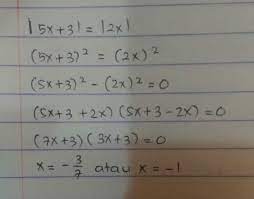 |5x+3| = |2x|
(5x+3)² = (2x)²
(5x+3)² - (2x)² = 0
(5x+3+2x)(5x+3-2x) = 0
(7x+3)(3x+3) = 0
x = -3/7 atau x = -1